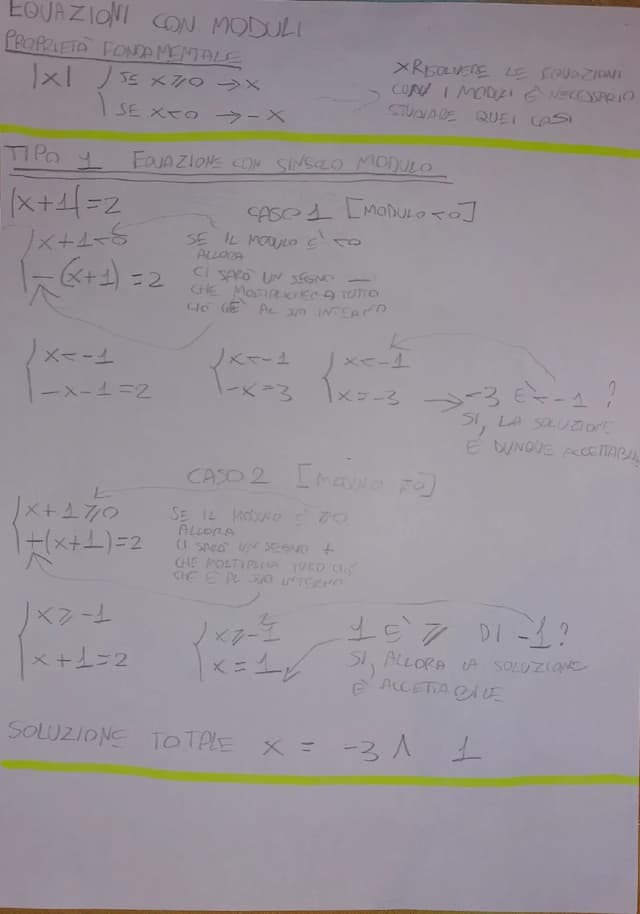 EQUAZIONI CON MODULI
PROPRIETÀ FONDAMENTALE
|x| { SE x ≥ 0 → x
SE x < 0 → - x
x RISOLVERE LE EQUAZIONI
CON I MODULI È NECESSARIO
STUDIARE QUEI CASI
TIPO 1 EQUAZIONE CON SINGOLO MODULO
|x+1| = 2
CASO 1 [MODULO < 0]
{ x+1 < 0
-(x+1) = 2
SE IL MODULO È < 0
ALLORA
CI SARÀ UN SEGNO —
CHE MOLTIPLICHERÀ TUTTO
CIÒ CHE AL SUO INTERNO
{ x < -1
-x-1 = 2
{ x < -1
-x = 3
{ x < -1
x = -3
→ -3 È < -1 ?
SI, LA SOLUZIONE
È DUNQUE ACCETTABILE
CASO 2 [MODULO ≥ 0]
{ x+1 ≥ 0
+(x+1) = 2
SE IL MODULO È ≥ 0
ALLORA
CI SARÀ UN SEGNO +
CHE MOLTIPLICA TUTTO CIÒ
CHE È AL SUO INTERNO
{ x ≥ -1
x+1 = 2
{ x ≥ -1
x = 1
1 È ≥ DI -1 ?
SI, ALLORA LA SOLUZIONE
È ACCETTABILE
SOLUZIONE TOTALE x = -3 ∧ 1